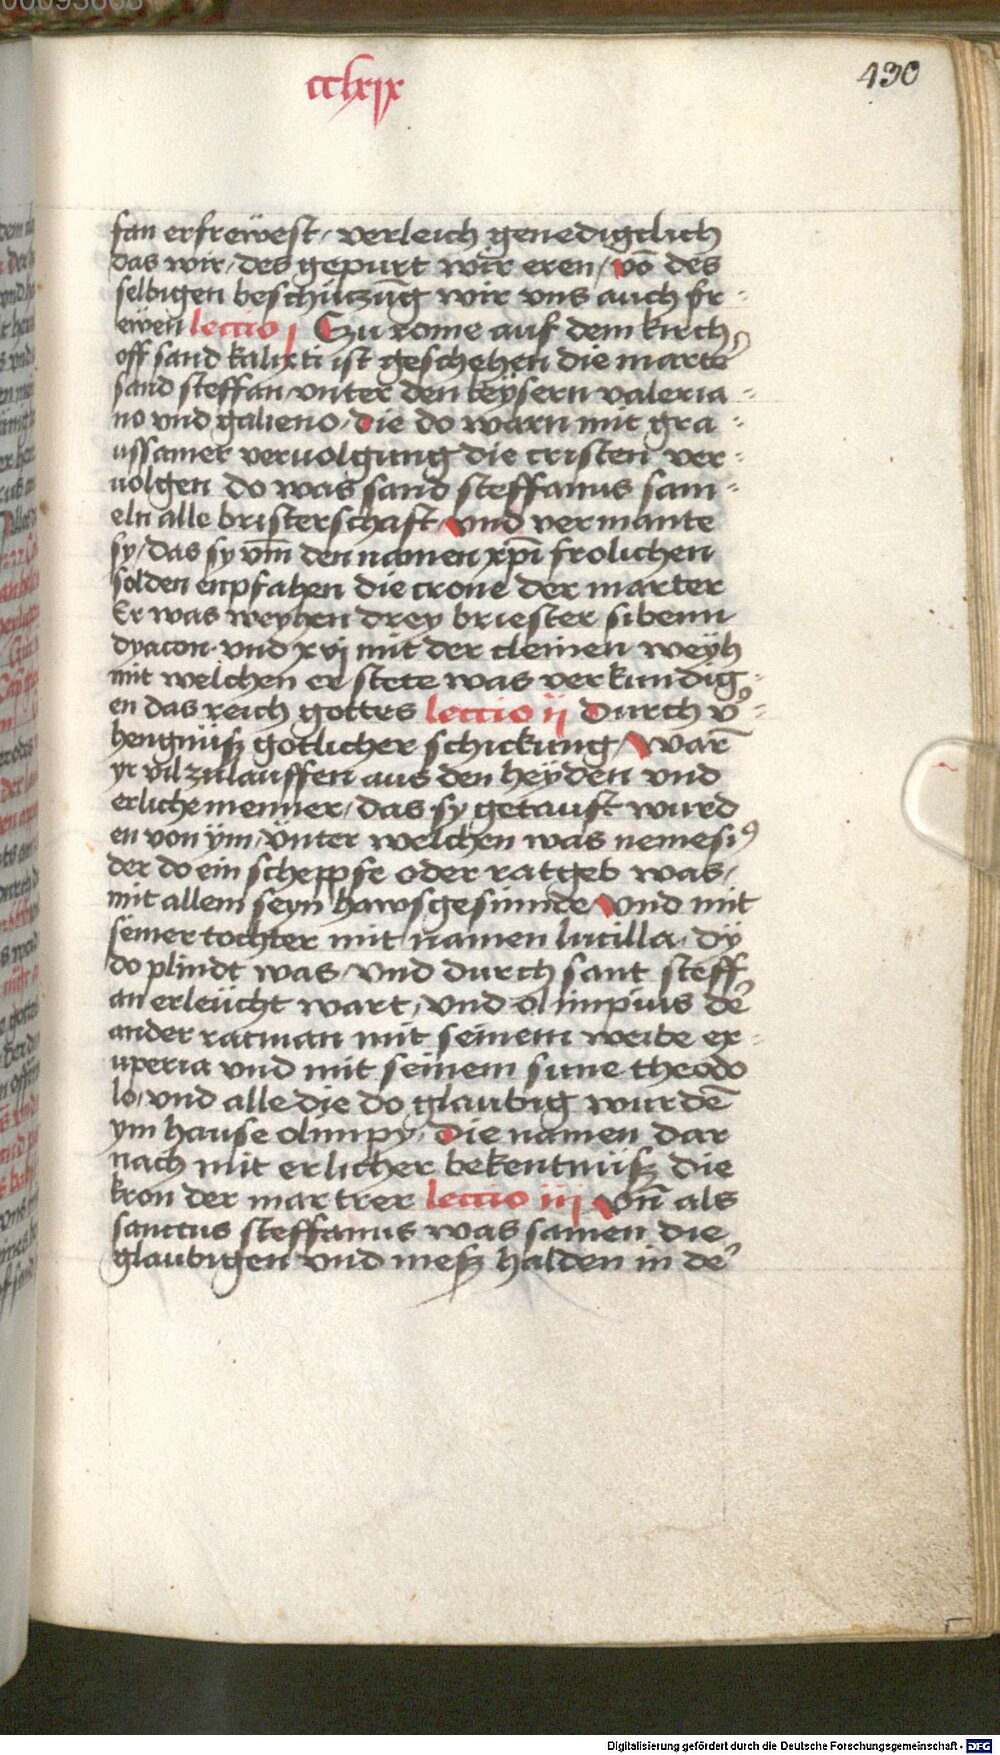 cclxix
430
fan erfreẅest / verleich genedigclich
das wir / des gepurt wir eren / vō des
selbigen beschüczūg wir vns auch fr-
eẅen lectio j Czu rome auf dem kirch
off sand kalixti ist geschehen die marte᷑
sand steffan vnter den keÿsern valeria-
no vnd galieno / die do warn mit gra-
ussamer veruolgung die cristen ver-
uolgen do was sand steffanus sam-
eln alle bristerschaft / vnd vermante
sy / das sy vm̄ den namen xp̄i frolichen
solden enpfahen die crone der marter
Er was weyhen drey briester sibenn
dyacon · vnd xvj mit der cleinen weyh
mit welchen er stete was verkundig-
en das reich gottes lectio ij Durch v᷑-
hengnüsz gotlicher schickung / Warn̄
yr vil zulauffen aus den heÿden vnd
erliche menner / das sy getauft wurd
en von ÿm / Vnter welchen was nemesiꝰ
der do ein scheppfe oder ratgeb was /
mit allem seyn hawsgesinnde / Vnd mit
seiner tochter mit namen lucilla / dÿ
do plindt was / vnd durch sant steff
an erleücht wart / vnd olimpius de᷑
ander ratman mit seinem weibe ex-
uperia vnd mit seinem sune theodo
lo / vnd alle die do glaubig wurdē
ym hause olimpy / die namen dar
nach mit erlicher bekentnüsz die
kron der martrer lectio iij Vn̄ als
sanctus steffanus was samen die
glaubigen vnd mesz halden in de᷑
Digitalisierung gefördert durch die Deutsche Forschungsgemeinschaft - DFG